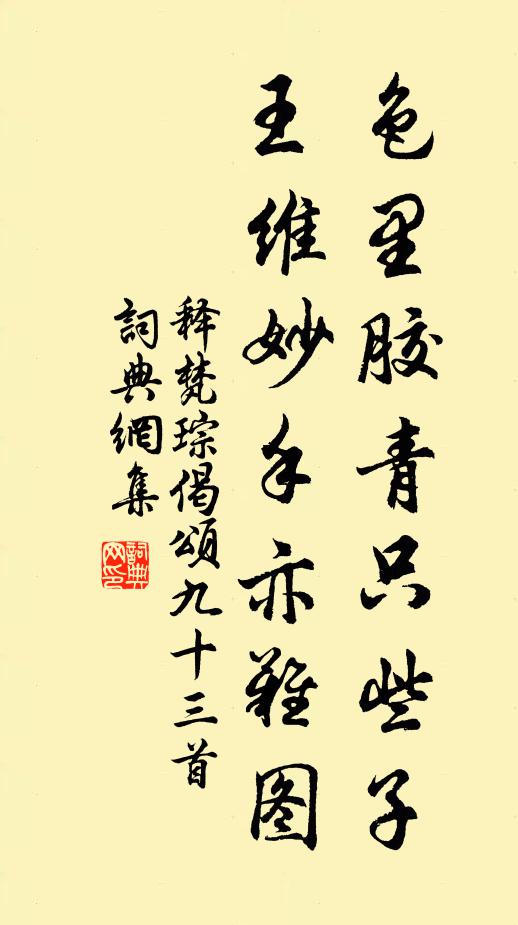 色里胶青只些子
王维妙手亦难图
释梵琮偈頌九十三首
詞典網集
詞典网印